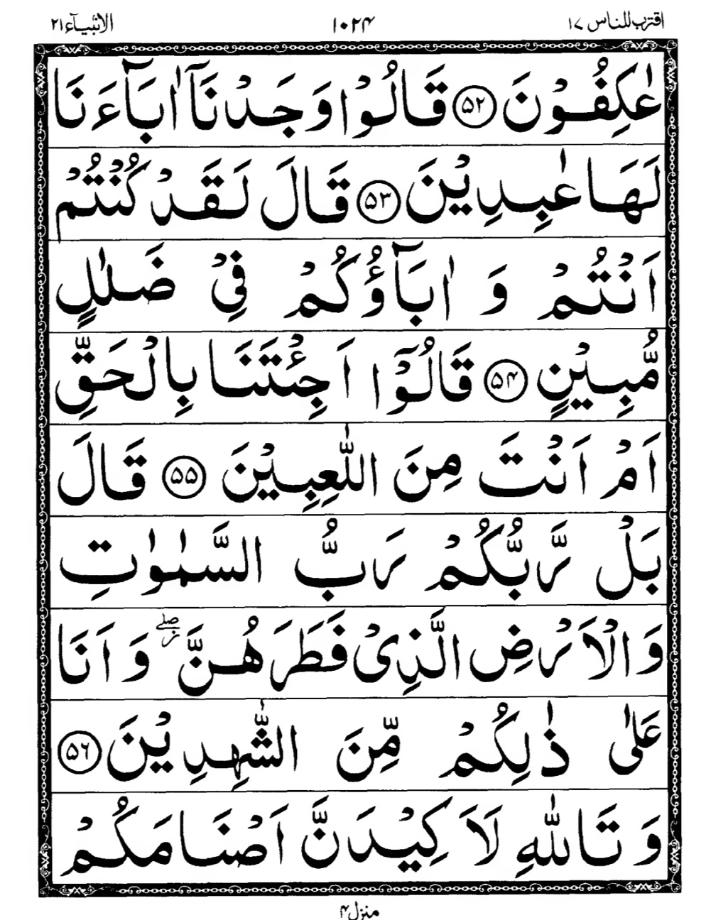 اقترب للناس ۱۷ ۱۰۲۴ الانبیآء ۲۱
عٰكِفُوْنَ ۵۲ قَالُوْا وَجَدْنَاۤ اٰبَآءَنَا
لَهَا عٰبِدِيْنَ ۵۳ قَالَ لَقَدْ كُنْتُمْ
اَنْتُمْ وَ اٰبَآؤُكُمْ فِيْ ضَلٰلٍ
مُّبِيْنٍ ۵۴ قَالُوْۤا اَجِئْتَنَا بِالْحَقِّ
اَمْ اَنْتَ مِنَ اللّٰعِبِيْنَ ۵۵ قَالَ
بَلْ رَّبُّكُمْ رَبُّ السَّمٰوٰتِ
وَالْاَرْضِ الَّذِيْ فَطَرَهُنَّ ۖ ز وَ اَنَا
عَلٰى ذٰلِكُمْ مِّنَ الشّٰهِدِيْنَ ۵۶
وَ تَاللّٰهِ لَاَكِيْدَنَّ اَصْنَامَكُمْ
منزل ۴